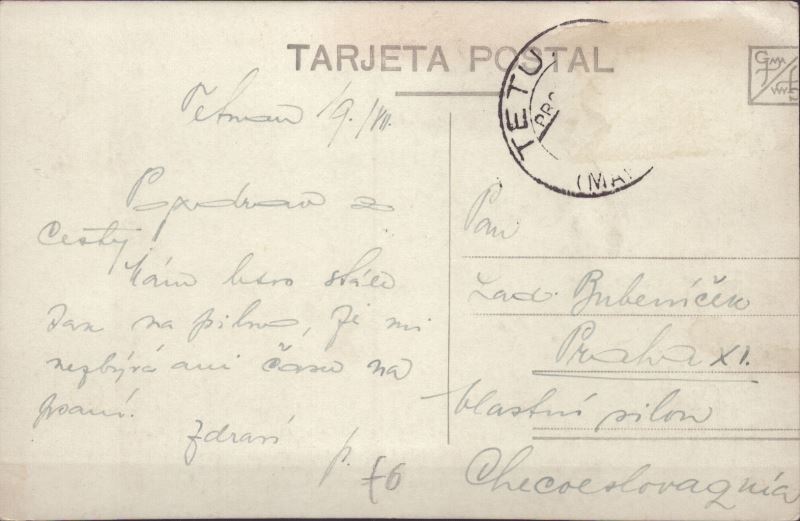 TARJETA POSTAL
TETU
(MA
Tetuan 19./VII.
Pozdrav z
cesty
Mám však stále
tak na pilno, že mi
nezbývá ani času na
psaní.
Zdraví
Pan
Lad. Bubeníček
Praha XI.
Vlastní silou
Checoeslovaquia